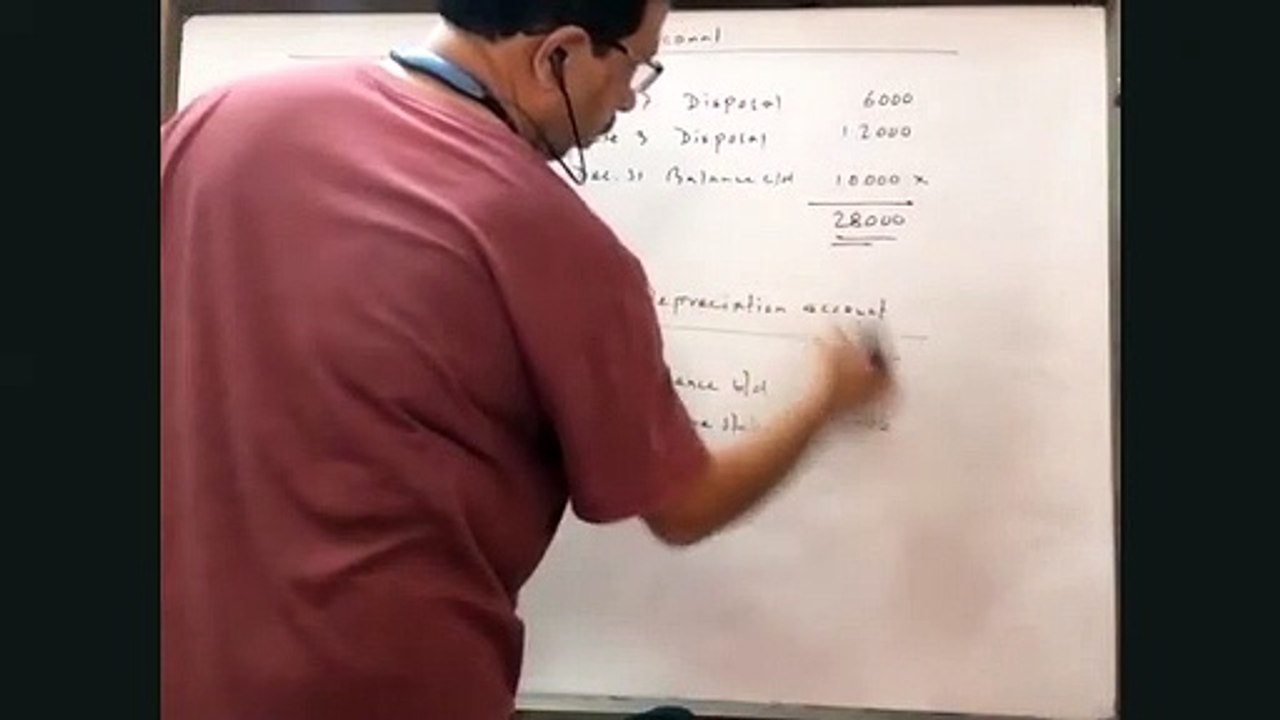 Disposal 6000
3 Disposal 12000
Dec. 31 Balance c/d 10000 x
28000
depreciation account
b/d